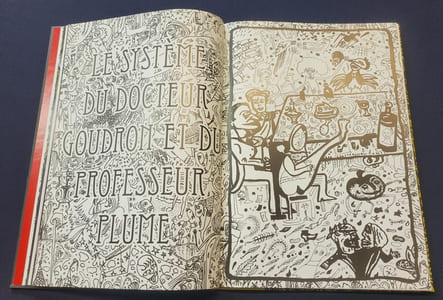 LE SYSTÈME
DU DOCTEUR
GOUDRON ET DU
PROFESSEUR
PLUME